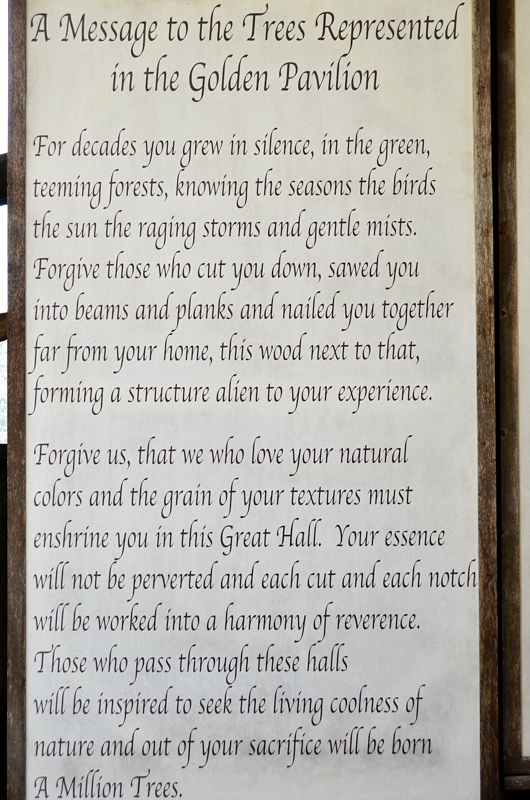 A Message to the Trees Represented
in the Golden Pavilion
For decades you grew in silence, in the green,
teeming forests, knowing the seasons the birds
the sun the raging storms and gentle mists.
Forgive those who cut you down, sawed you
into beams and planks and nailed you together
far from your home, this wood next to that,
forming a structure alien to your experience.
Forgive us, that we who love your natural
colors and the grain of your textures must
enshrine you in this Great Hall. Your essence
will not be perverted and each cut and each notch
will be worked into a harmony of reverence.
Those who pass through these halls
will be inspired to seek the living coolness of
nature and out of your sacrifice will be born
A Million Trees.